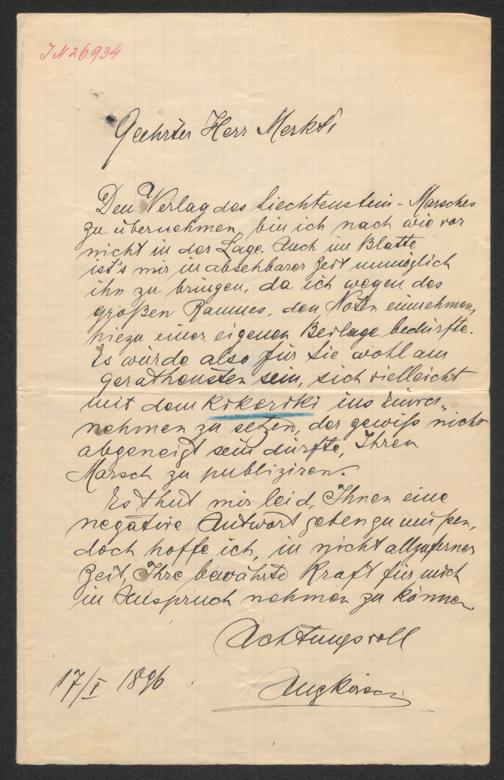 IN 26934
Geehrter Herr Merkt!
Den Verlag des Liechtenstein-Marsches
zu übernehmen, bin ich nach wie vor
nicht in der Lage. Auch im Blatte
ist's mir in absehbarer Zeit unmöglich
ihn zu bringen, da ich wegen des
großen Raumes, den Noten einnehmen,
hiezu einer eigenen Beilage bedürfte.
Es würde also für Sie wohl am
gerathensten sein, sich vielleicht
mit dem Kikeriki ins Einver-
nehmen zu setzen, der gewiß nicht
abgeneigt sein dürfte, Ihren
Marsch zu publiziren.
Es thut mir leid, Ihnen eine
negative Antwort geben zu müssen,
doch hoffe ich, in nicht allzuferner
Zeit, Ihre bewährte Kraft für mich
in Anspruch nehmen zu können.
Achtungsvoll
17/I 1896